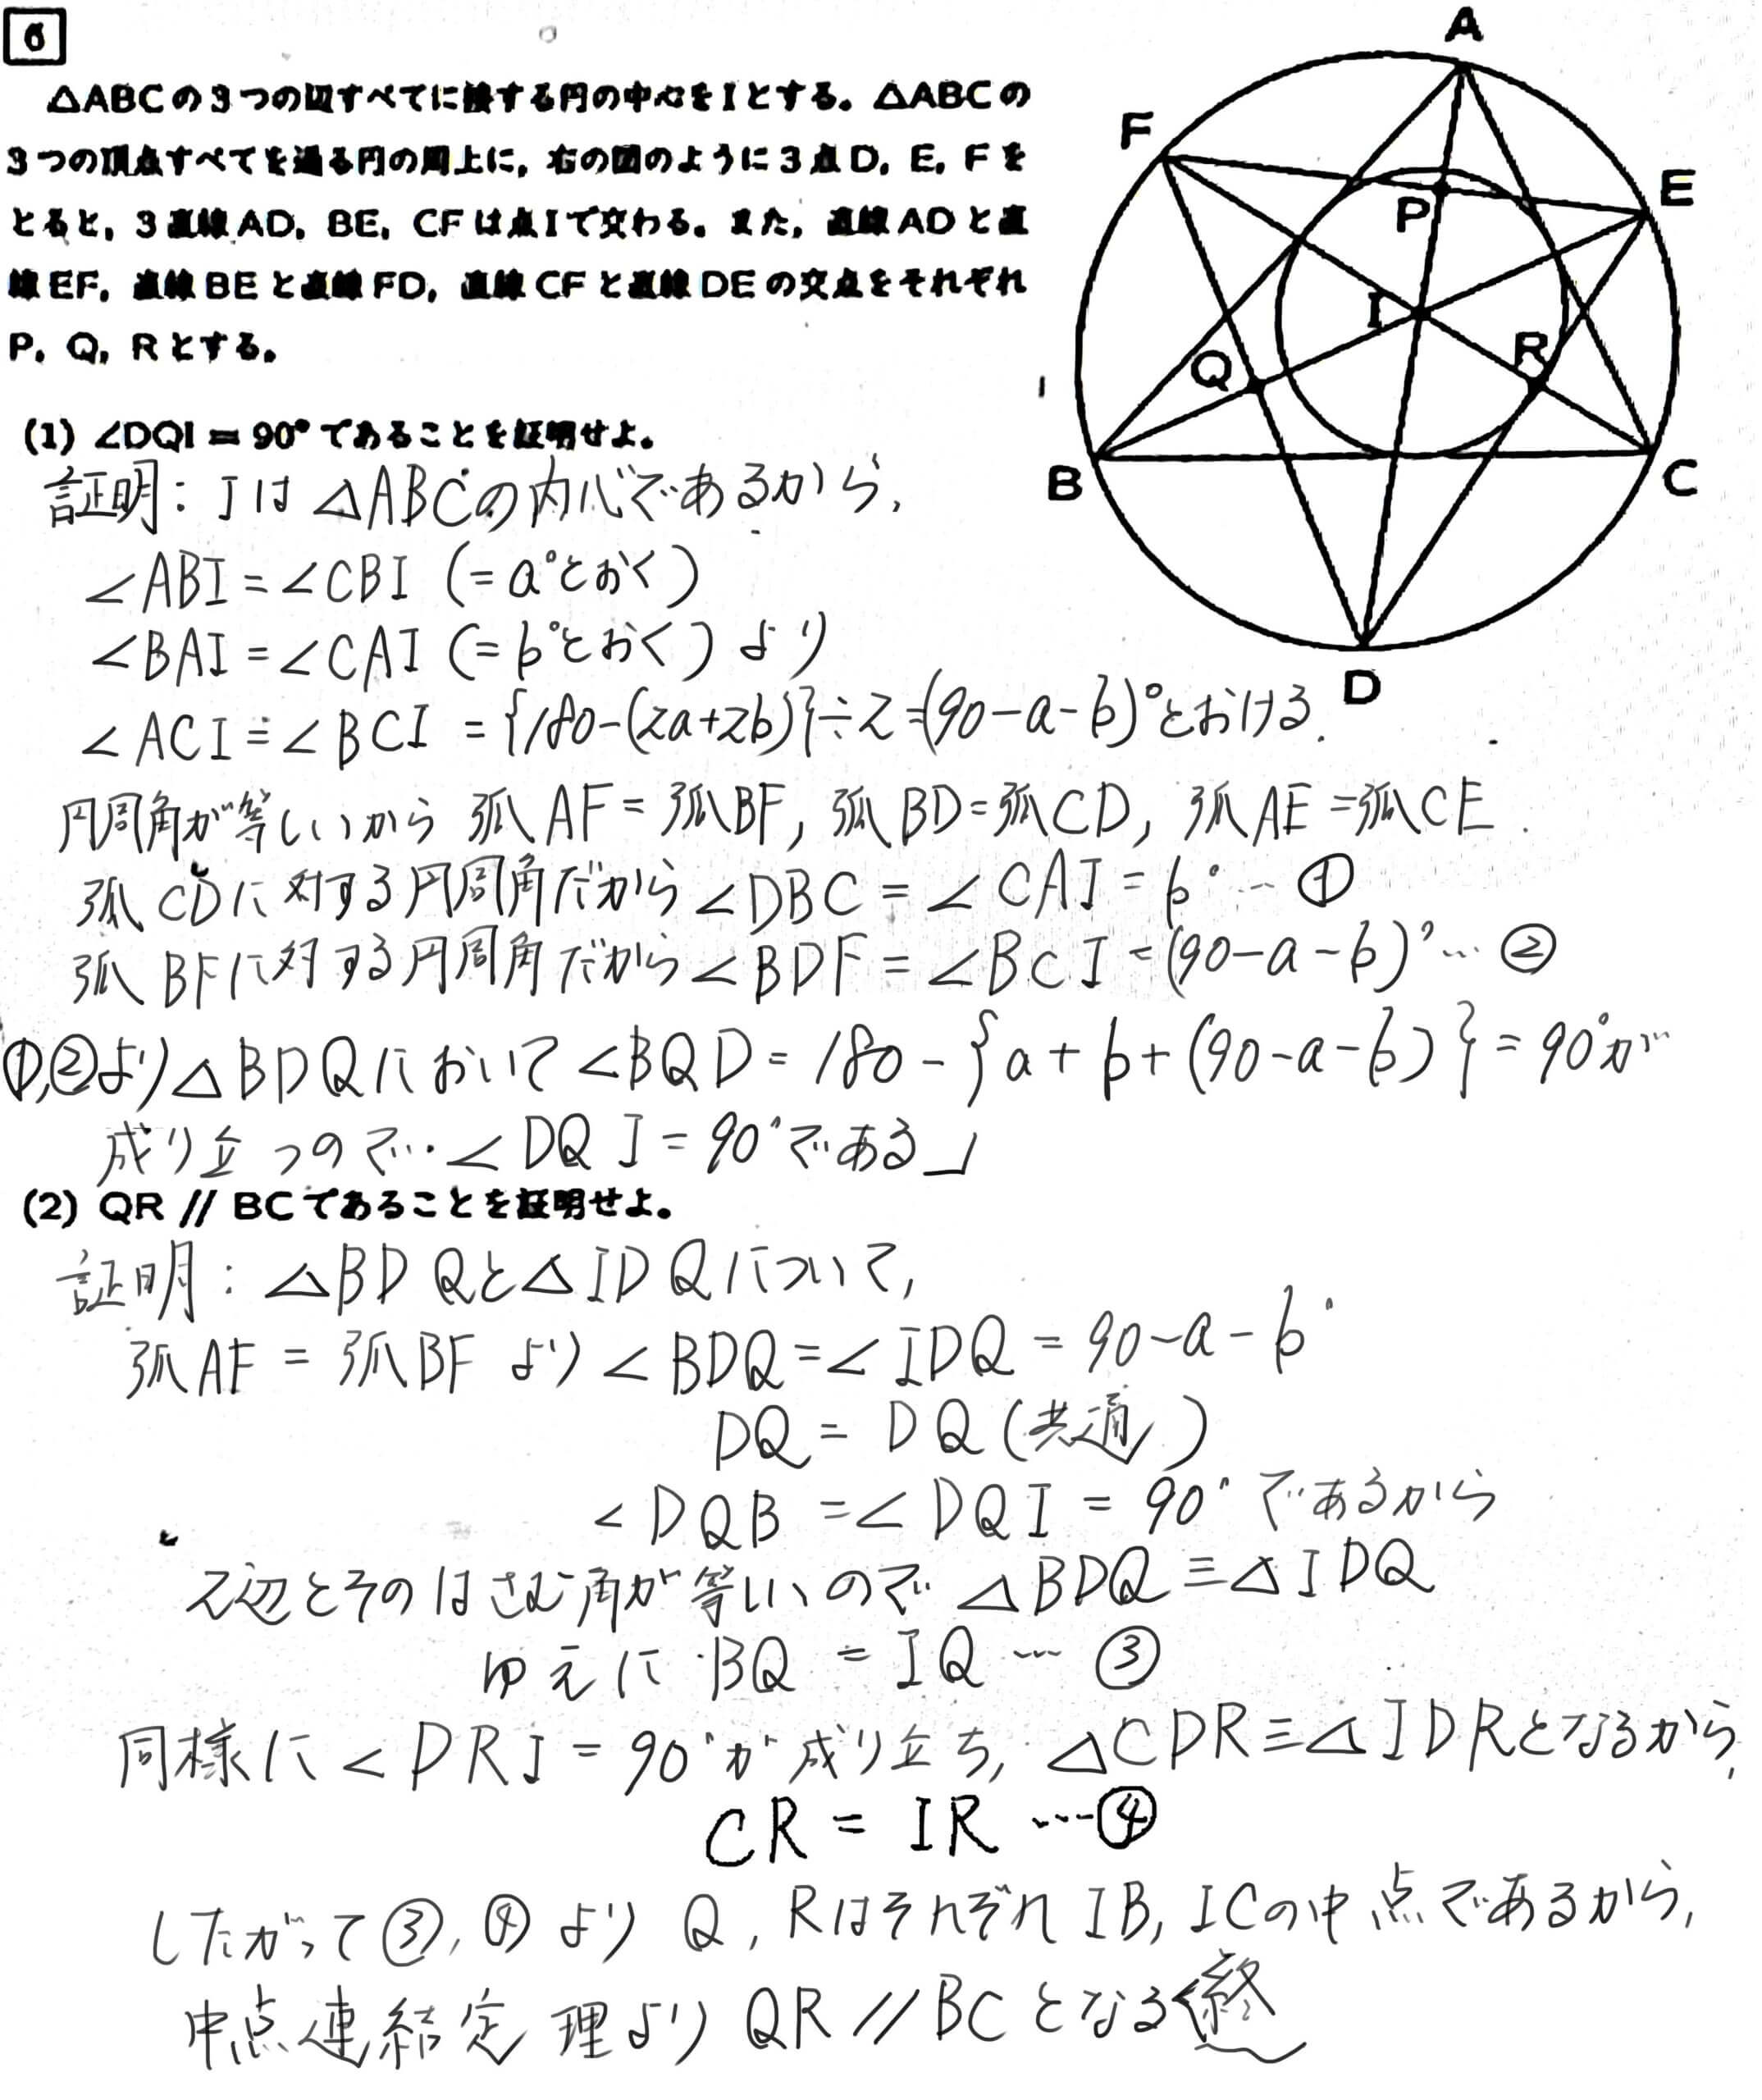 6
△ABCの3つの辺すべてに接する円の中心をIとする。△ABCの
3つの頂点すべてを通る円の周上に,右の図のように3点D,E,Fを
とると,3直線AD,BE,CFは点Iで交わる。また,直線ADと直
線EF,直線BEと直線FD,直線CFと直線DEの交点をそれぞれ
P,Q,Rとする。
A
F
E
P
I
Q
R
B
C
D
(1) ∠DQI=90°であることを証明せよ。
証明:Iは△ABCの内心であるから,
∠ABI=∠CBI (=a°とおく)
∠BAI=∠CAI (=b°とおく) より
∠ACI=∠BCI ={180-(2a+2b)}÷2=(90-a-b)°とおける.
円周角が等しいから 弧AF=弧BF, 弧BD=弧CD, 弧AE=弧CE.
弧CDに対する円周角だから∠DBC=∠CAI=b°…①
弧BFに対する円周角だから∠BDF=∠BCI=(90-a-b)°…②
①,②より△BDQにおいて∠BQD=180-{a+b+(90-a-b)}=90°が
成り立つので.∠DQI=90°である」
(2) QR // BCであることを証明せよ。
証明:△BDQと△IDQについて,
弧AF=弧BFより∠BDQ=∠IDQ=90-a-b°
DQ=DQ(共通)
∠DQB=∠DQI=90°であるから
2辺とそのはさむ角が等しいので△BDQ≡△IDQ
ゆえに BQ=IQ…③
同様に∠DRI=90°が成り立ち,△CDR≡△IDRとなるから,
CR=IR…④
したがって③,④よりQ,RはそれぞれIB,ICの中点であるから,
中点連結定理よりQR//BCとなる終